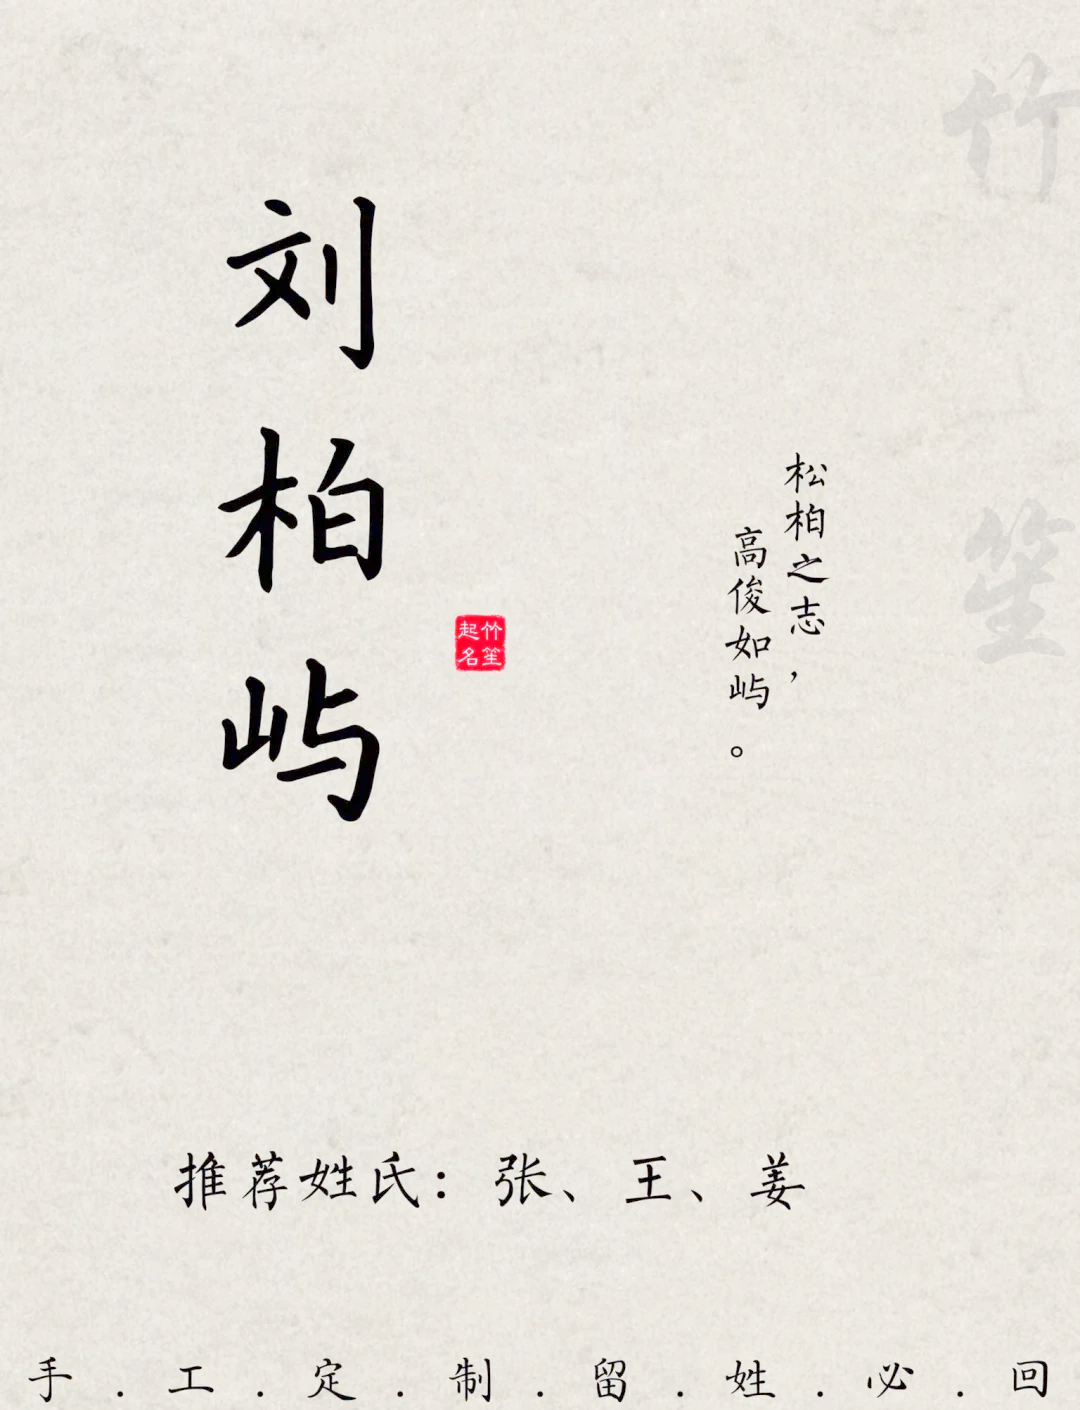 竹笙
刘柏屿
松柏之志，
高俊如屿。
竹笙
起名
推荐姓氏：张、王、姜
手.工.定.制.留.姓.必.回